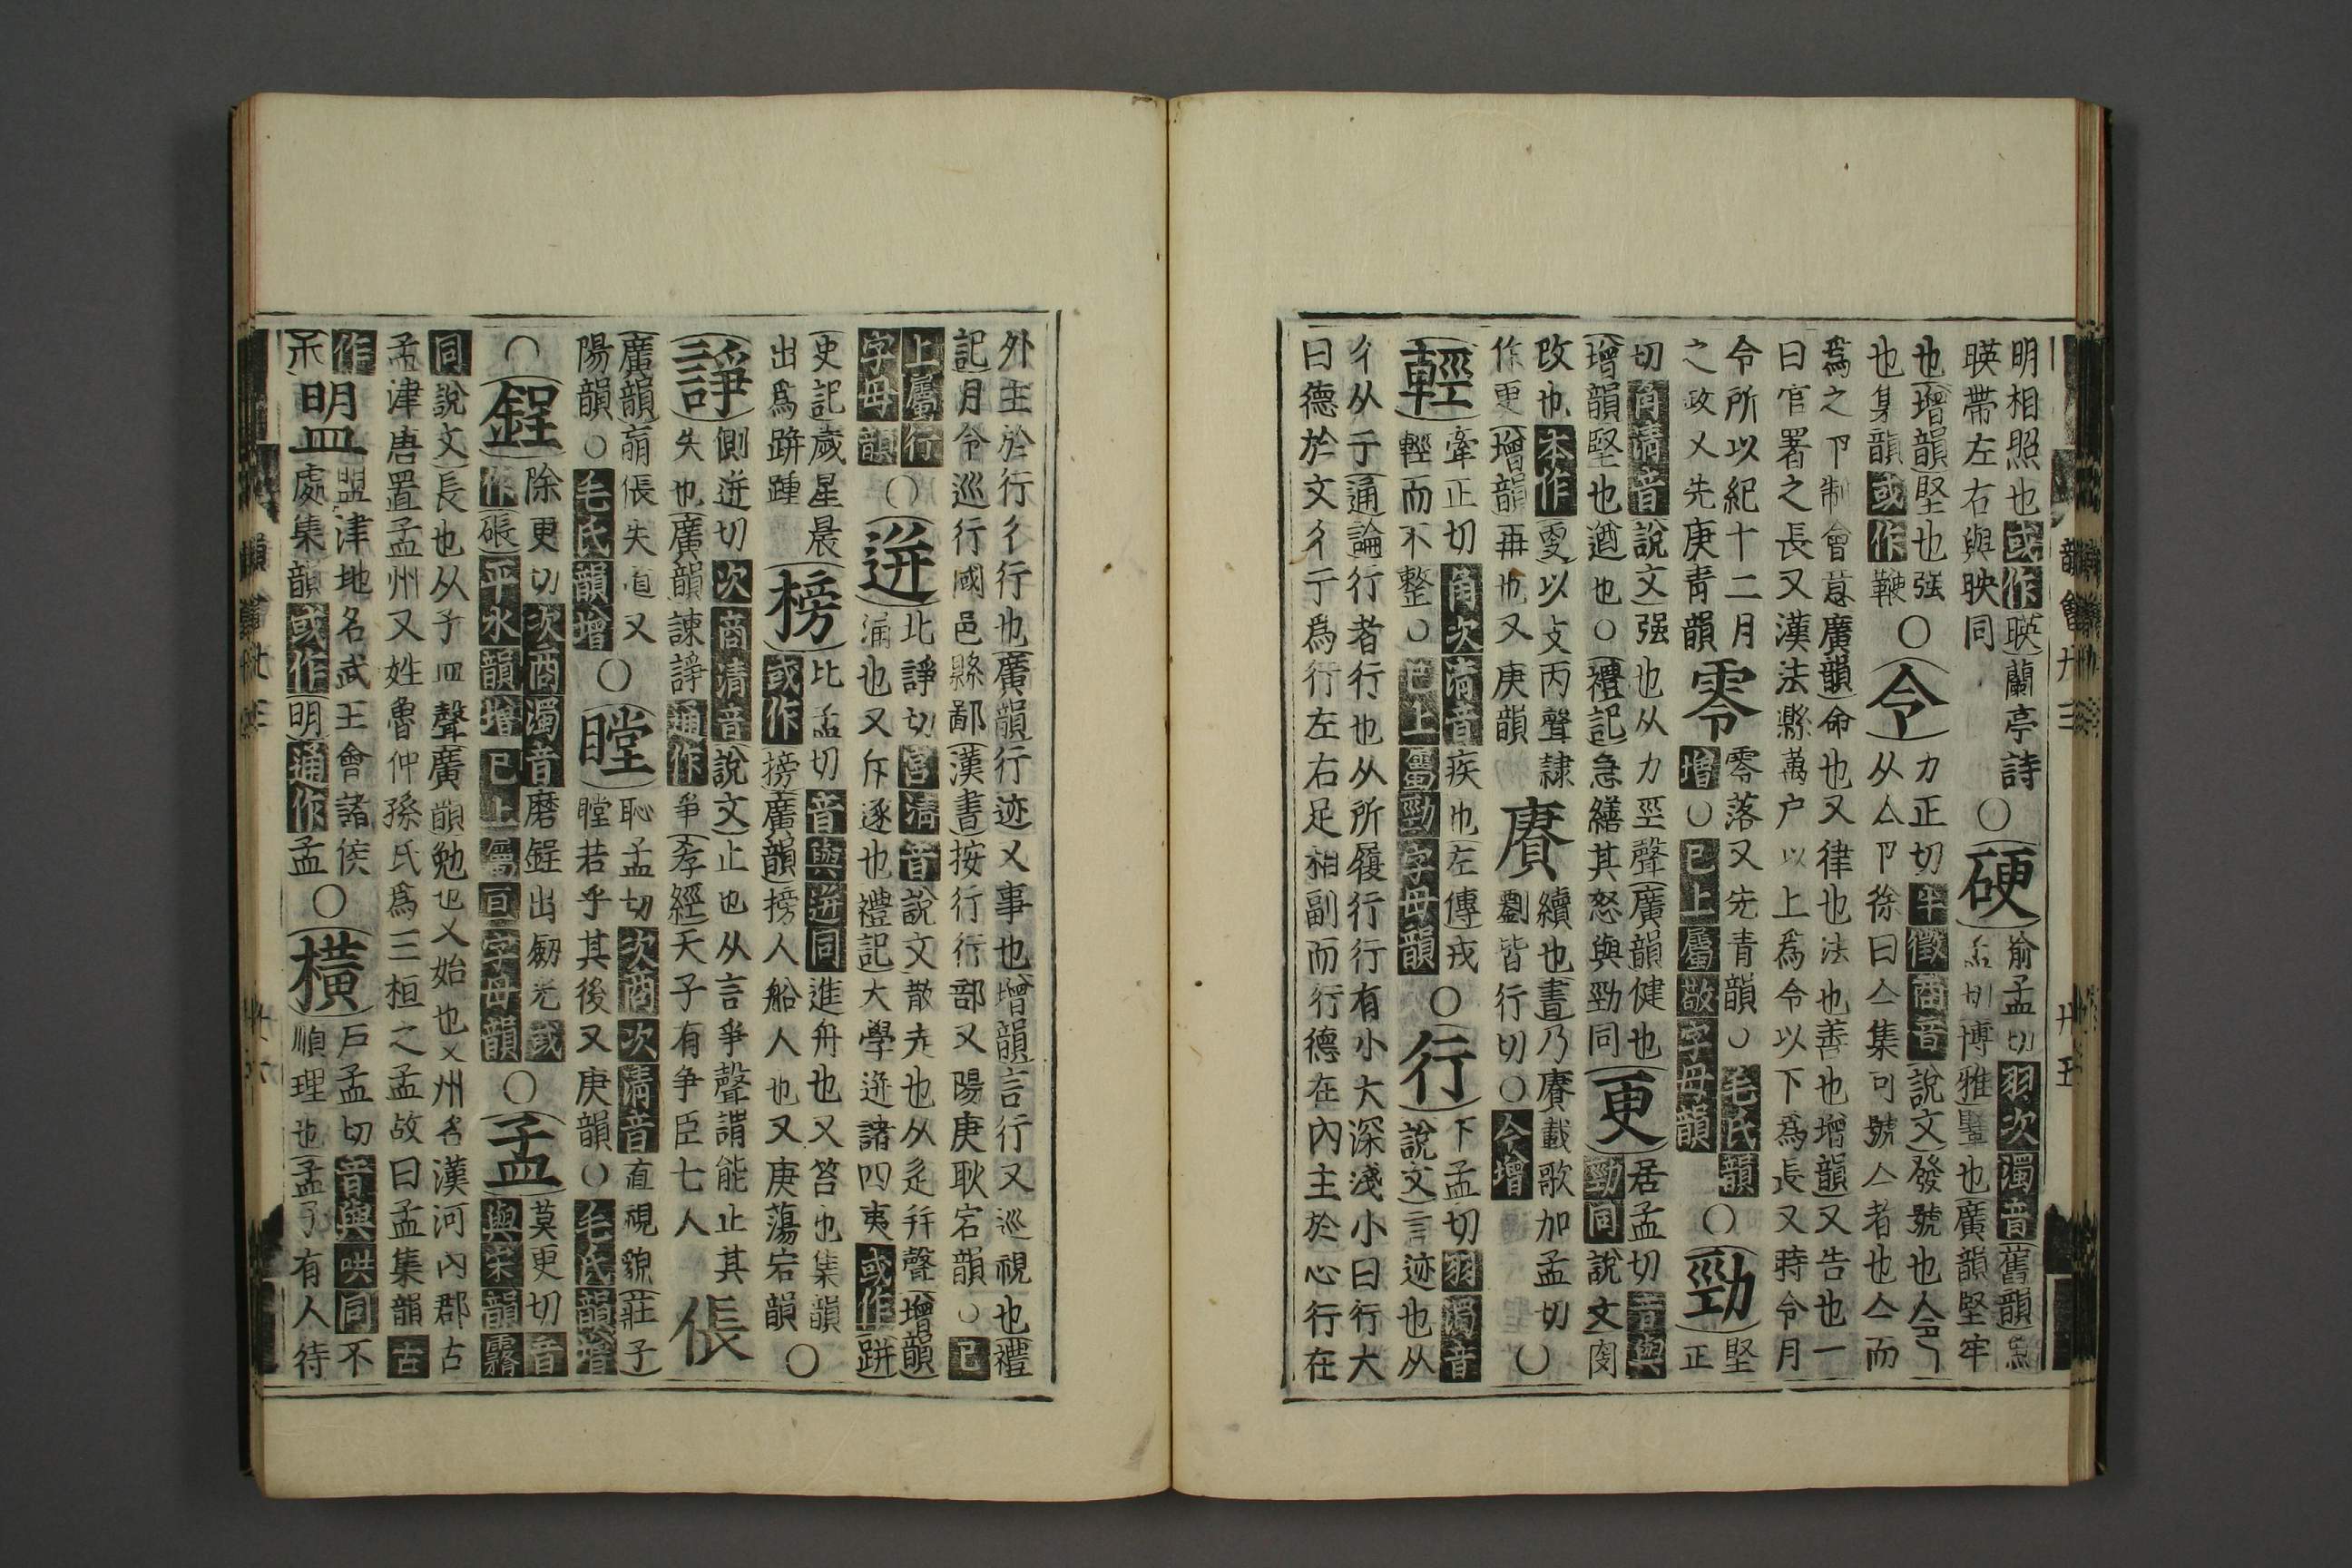 明相照也或作暎蘭亭詩
暎帶左右與映同
○硬
喻孟切羽次濁音舊韻
博雅鞕也廣韻堅牢
也增韻堅也强
也集韻或作鞕
○令
力正切半徵商音說文發號也
从亼卩徐曰亼集而號亼者也亼而
爲之卪制會意廣韻命也又律也法也善也增韻又告也一
曰官署之長又漢法縣萬户以上爲令以下爲長又時令月
令所以紀十二月
之政又先庚青韻
零
零落又先青韻○毛氏韻
增○已上屬敬字母韻
○勁
堅正
切角清音說文强也从力巠聲廣韻健也
增韻堅也遒也○禮記急繕其怒與勁同
更
居孟切音與
勁同說文
改也本作㪅以攴丙聲隸
作更增韻再也又庚韻
賡
續也書乃賡載歌加孟切○
劉皆行切○今增
輕
牽正切角次清音疾也左傳戎
輕而不整○已上屬勁字母韻
○行
下孟切羽濁音
說文言迹也从
彳从亍通論行者行也从所履行行有小大深淺小曰行大
曰德於文彳亍爲行左右足相副而行德在內主於心行在
外主於行彳行也廣韻行迹又事也增韻言行又巡視也禮
記月令巡行國邑縣鄙漢書按行行部又陽庚耿宕韻○已
上屬行
字母韻
○迸
北諍切宮清音說文散走也从辵幷聲增韻
涌也又斥逐也禮記大學迸諸四夷或作跰
史記歲星晨
出爲跰踵
榜
比孟切音與迸同進舟也又笞也集韻
或作搒廣韻搒人船人也又庚蕩宕韻
○
諍
側迸切次商清音說文止也从言爭聲謂能止其
失也廣韻諫諍通作爭孝經天子有争臣七人
倀
廣韻倀失道又
陽韻○毛氏韻增
○瞠
恥孟切次商次清音直視貌莊子
瞠若乎其後又庚韻○毛氏韻增
○鋥
除更切次商濁音磨鋥出劒光或
作碾平水韻增已上屬亘字母韻
○孟
莫更切音
與宋韻霿
同說文長也从子皿聲廣韻勉也又始也又州名漢河内郡古
孟津唐置孟州又姓魯仲孫氏爲三桓之孟故曰孟集韻古
作
𥁰
盟津地名武王會諸侯
處集韻或作明通作孟
○橫
戶孟切音與哄同不
順理也孟子有人待